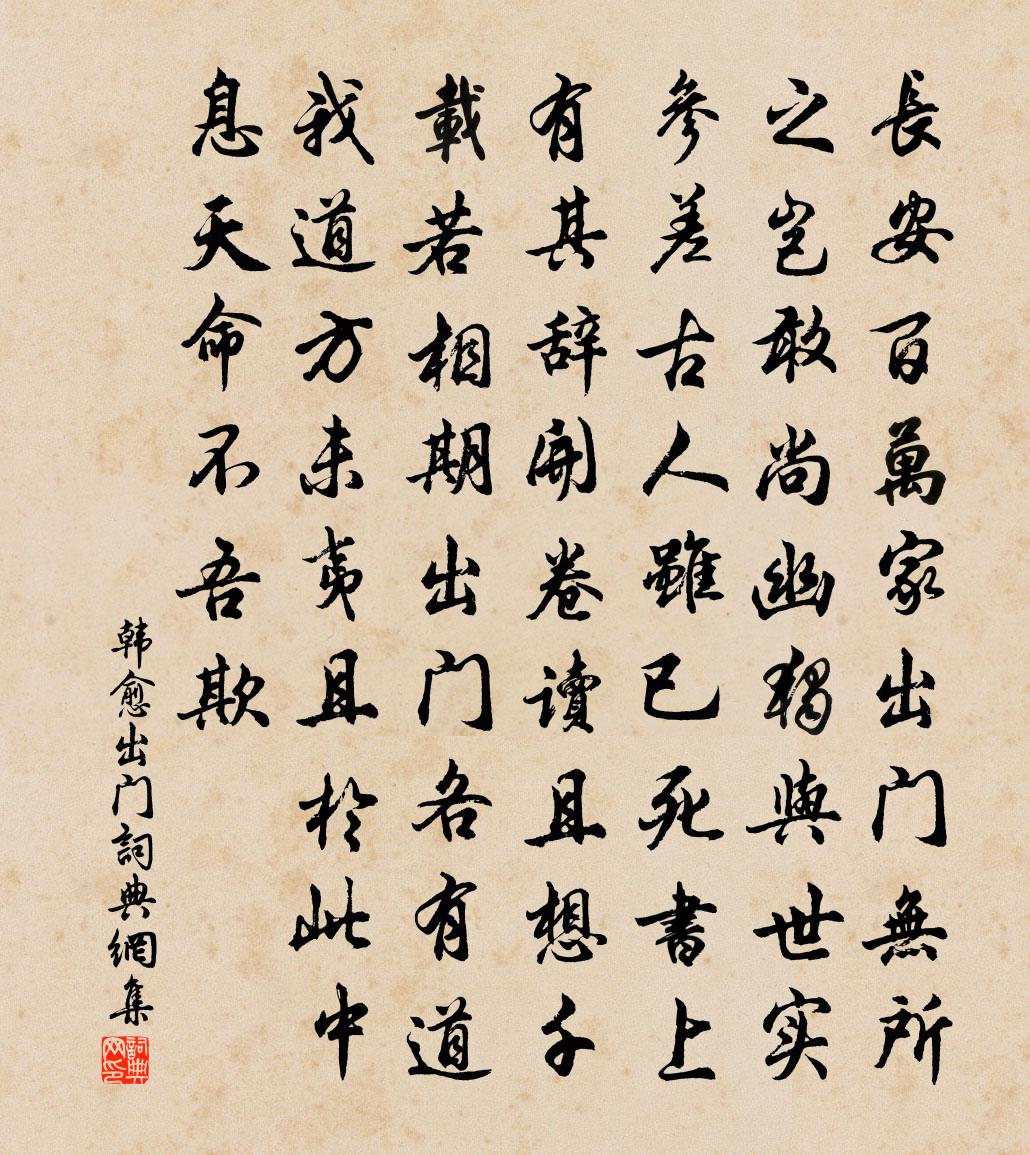 長安百萬家出门無所
之岂敢尚幽獨與世实
參差古人雖已死書上
有其辞開卷讀且想千
載若相期出门各有道
我道方未夷且於此中
息天命不吾欺
韩愈出门詞典網集
詞典网印